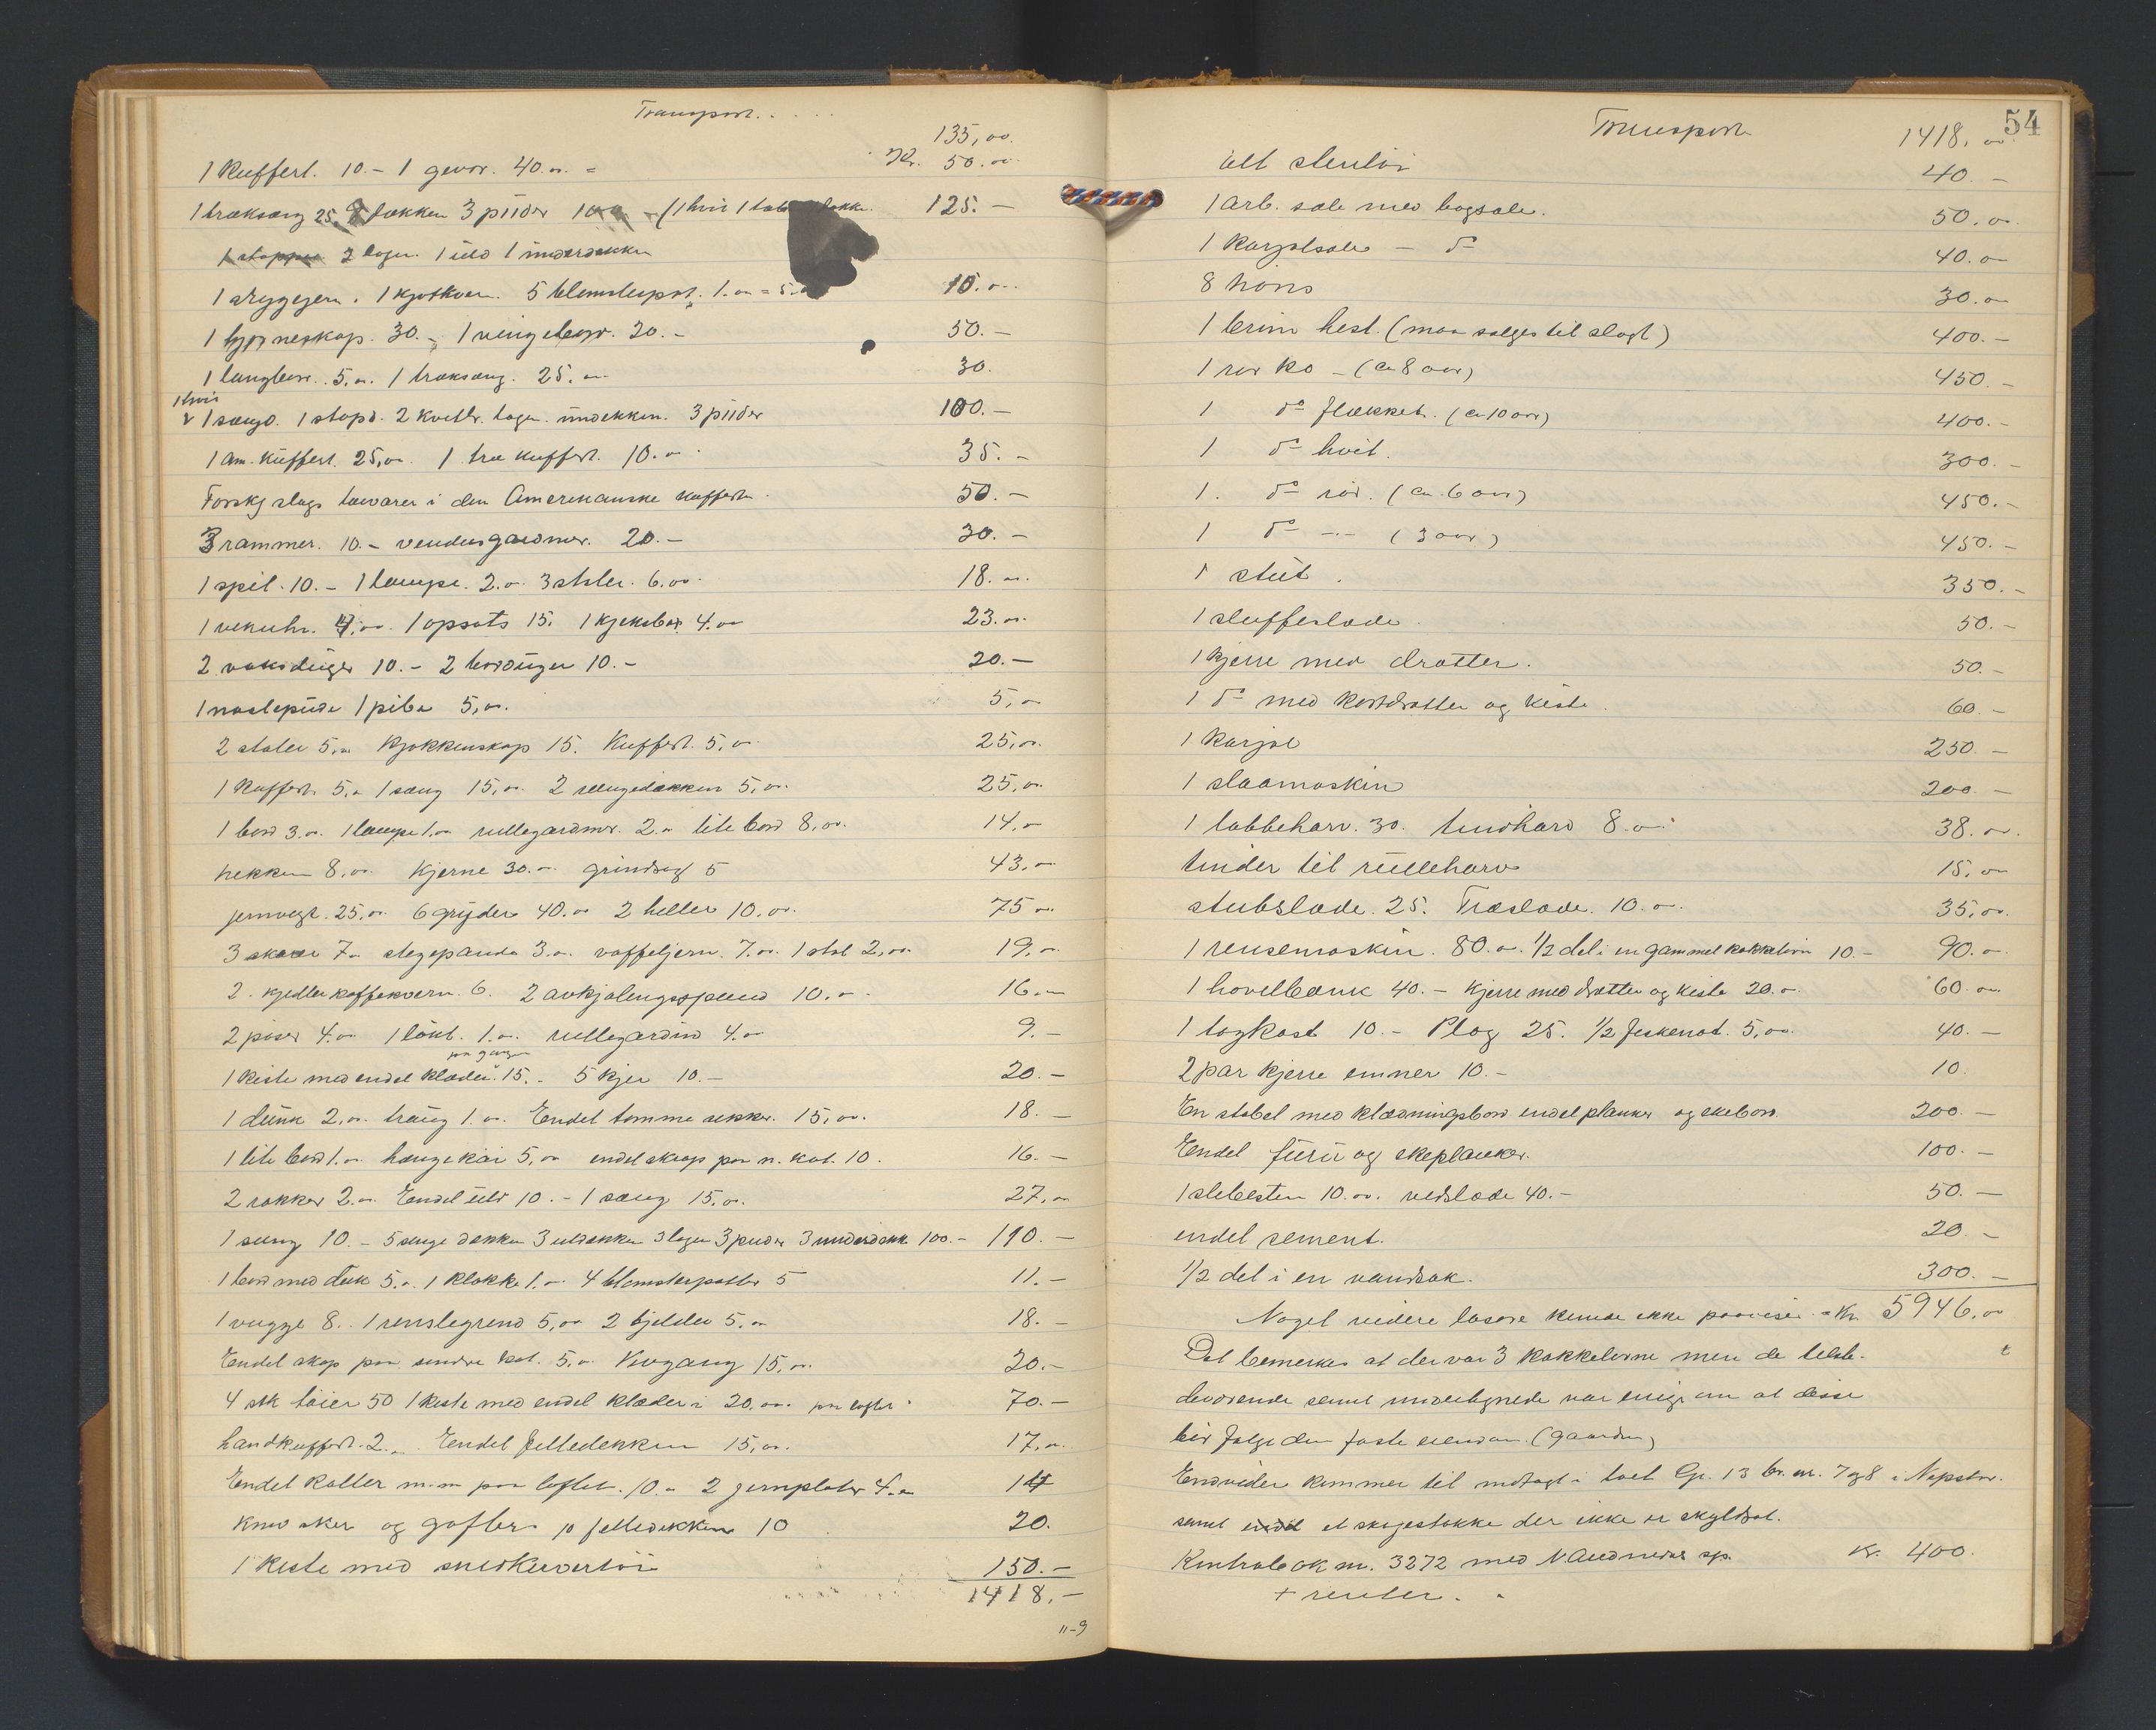 Transport. . . . .
135,00.
1 Kuffert. 10.- 1 gevær. 40.00. = Kr. 50.00
1 træksæng 25. tækken 3 püder (1 hvit 1 125.-
2 lagen. 1 uld 1 underdækken
1 strygejern. 1 kjøtkværn. 5 blomsterpot. 1.00 = 5. 10.00
1 hjørneskap. 30.- 1 vingebord. 20.- 50.-
1 langbord. 5.00. 1 træksæng. 25.00 30.
1 hvit
1 sængd. 1 stopd. 2 kvitlr. lagen. undekken. 3 püder 100.-
1 am. Küffert. 25,00. 1 træ kuffert. 10.00 35.-
Forskj slags tøivarer i den Amerikanske kuffert. 50.-
3 rammer. 10.- vindusgardiner. 20.- 30.-
1 spil. 10.- 1 lampe. 2.00. 3 stoler. 6.00. 18.00.
1 vekuhr. 4.00. 1 opsats 15. 1 kjeksbox. 4.00 23.00.
2 voksdüger 10.- 2 bordüger 10.- 20.-
1 piber 5,00. 5,00
2 stoler 5,00 Kjøkkenskap 15. Kuffert. 5,00 25,00.
1 Kuffert. 5,00 1 sæng 15,00. 2 sengedækken 5,00. 25,00.
1 bord 3.00. 1 lampe 1.00 rullegardiner. 2.00 lite bord 8,00. 14,00
hekken 8,00. Kjerne 30.00. grindsag 5 43,00
jernvegt. 25,00. 6 gryder 40.00 2 heller 10,00. 75 00.
3 7.00 stegepande 3.00. vaffeljern. 7.00. 1 stol 2,00. 19,00
2. kjedler kaffekværn. 6. 2 avkjølingsspand 10.00 16.00
2 poser 4.00 1 1.00. rullegardin 4.00 9.-
paa gangen
1 kiste med endel klæder. 15.- 5 kjer 10.- 20.-
1 dünk 2,00. traug 1.00. Endel tomme sekker. 15,00. 18.-
1 lite bord 1.00. hængekøi 5,00 endel skrap paa n. kot. 10. 16.-
2 rokker 2.00. Endel üld 10.- 1 sæng 15.00. 27,00
1 seng 10.- 5 senge dækken 3 uldækken 3 lagen 3 puder 3 underdækk 100.- 110.-
1 bord med duk 5.00. 1 klokke 1.00 4 blomsterpotter 5 11.-
1 vugge 8. 1 renslegrend 5,00 2 bjelder 5.00 18.-
Endel skap paa søndre kot. 5.00. 15,00. 20.-
4 stk tøier 50 1 kiste med endel klæder i 20.00. paa loftet. 70.-
handkuffert. 2.00 Endel felledekken 15,00. 17,00.
Endel Køller m.m paa loftet. 10.00 2 jernplater 4.00 14
Knivsker og gafler 10 felledekken 10 20.
1 kiste med snedkerværktøi 150.-
1418.-
11-9
54
Transport 1418.00
alt stentøi 40.-
1 arb. sæle med bogsæle. 50.00.
1 Karjolsæle - do 40.00
8 høns 30.00
1 brun hest. (maa sælges til slagt) 400.-
1 rør ko - (ca 8 aar) 450.-
1 do flækket. (ca 10 aar) 400.-
1 do hvit. 300.-
1. do rød. (ca. 6 aar) 450.-
1 do -.- (3 aar) 450.-
1 stut. 350.-
1 slufferslæde. 50.-
1 kjerre med drætter. 50.-
1 do med kortdrætter og kiste. 60.-
1 Karjol 250.-
1 slaamaskin 200.-
1 labbeharv. 30. tindharv 8.00. 38.00.
tinder til rulleharv 15,00
stubslæde. 25. Træslæde. 10.00. 35,00.
1 rensemaskin. 80.00. 1/2 del i en gammel kakkelovn 10.- 90.00
1 høvelbænk 40.- kjerre med drætter og kiste 20.00. 60.00.
1 logkast 10.- Plog 25. 1/2 feskenot. 5,00. 40.-
2 par kjerre emner 10.- 10.
En stabel med klædningsbord endel planker og ekebord. 200.-
Endel füru og ekeplanker. 100.-
1 slibesten 10.00. vedslæde 40.- 50.-
endel sement. 20.-
1/2 del i en vandsak. 300.-
Noget videre løsøre kunde ikke paavises. = Kr. 5946,00
Det bemerkes at der var 3 Kakkelovne men de tilste-
deværende samt undertegnede var enige om at disse
bør følge den faste eiendom. (gaarden)
Endvidere kommer til indtægt i boet Gr. 13 br. nr. 7 og 8 i
samt et skogestokke der ikke er skyldsat.
Kontrabok nr. 3272 med N.Audnedal sp. Kr. 400.
+ renter.